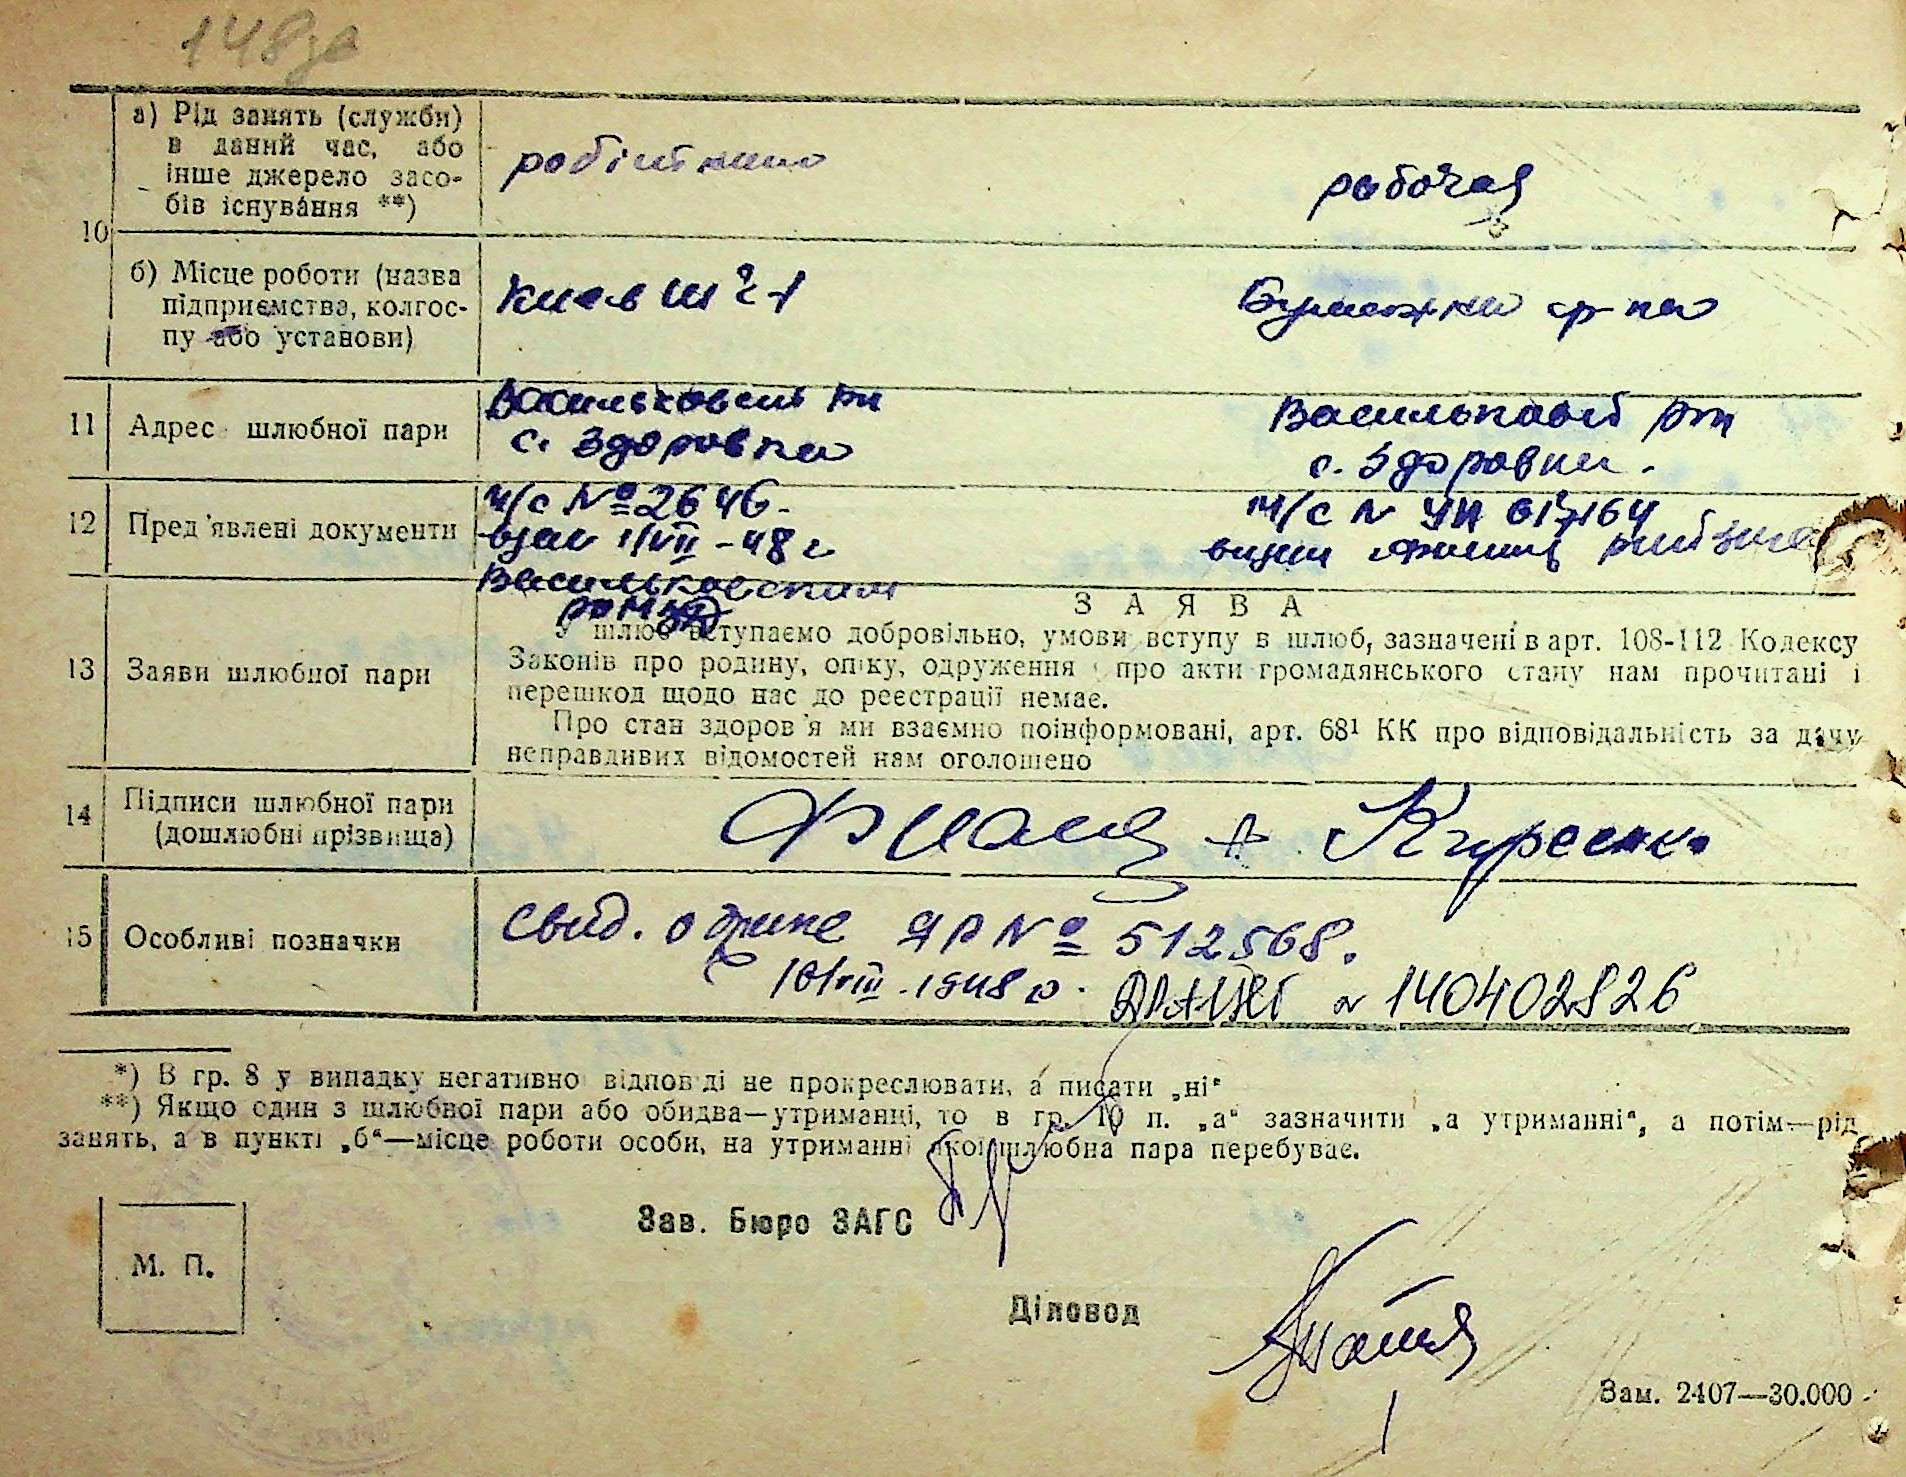 148зв
а) Рід занять (служби)
в даний час, або
інше джерело засо-
бів існування **)
робітник
рабочая
10
б) Місце роботи (назва
підприємства, колгос-
пу або установи)
Киев
ф-ка
11
Адрес шлюбної пари
Васильковский рн
с. Здоровка
Васильковский рн
с. Здоровка.
12
Пред'явлені документи
№ 2646.
1/VII-48 г
Васильковским
N
164
13
Заяви шлюбної пари
ЗАЯВА
У шлюб вступаємо добровільно, умови вступу в шлюб, зазначені в арт. 108-112 Кодексу
Законів про родину, опіку, одруження і про акти громадянського стану нам прочитані і
перешкод щодо нас до реєстрації немає.
Про стан здоров'я ми взаємно поінформовані, арт. 68¹ КК про відповідальність за дачу
неправдивих відомостей нам оголошено
14
Підписи шлюбної пари
(дошлюбні прізвища)
15
Особливі позначки
Свид. о браке ЯР № 512568.
VIII-1948 г.
N 140402826
*) В гр. 8 у випадку негативно відповіді не прокреслювати, а писати „ні“
**) Якщо один з шлюбної пари або обидва—утриманці, то в гр. 10 п. „а“ зазначити „а утриманні“, а потім—рід
занять, а в пункті „б“—місце роботи особи, на утриманні якої шлюбна пара перебуває.
М. П.
Зав. Бюро ЗАГС
Діловод
Зам. 2407—30.000